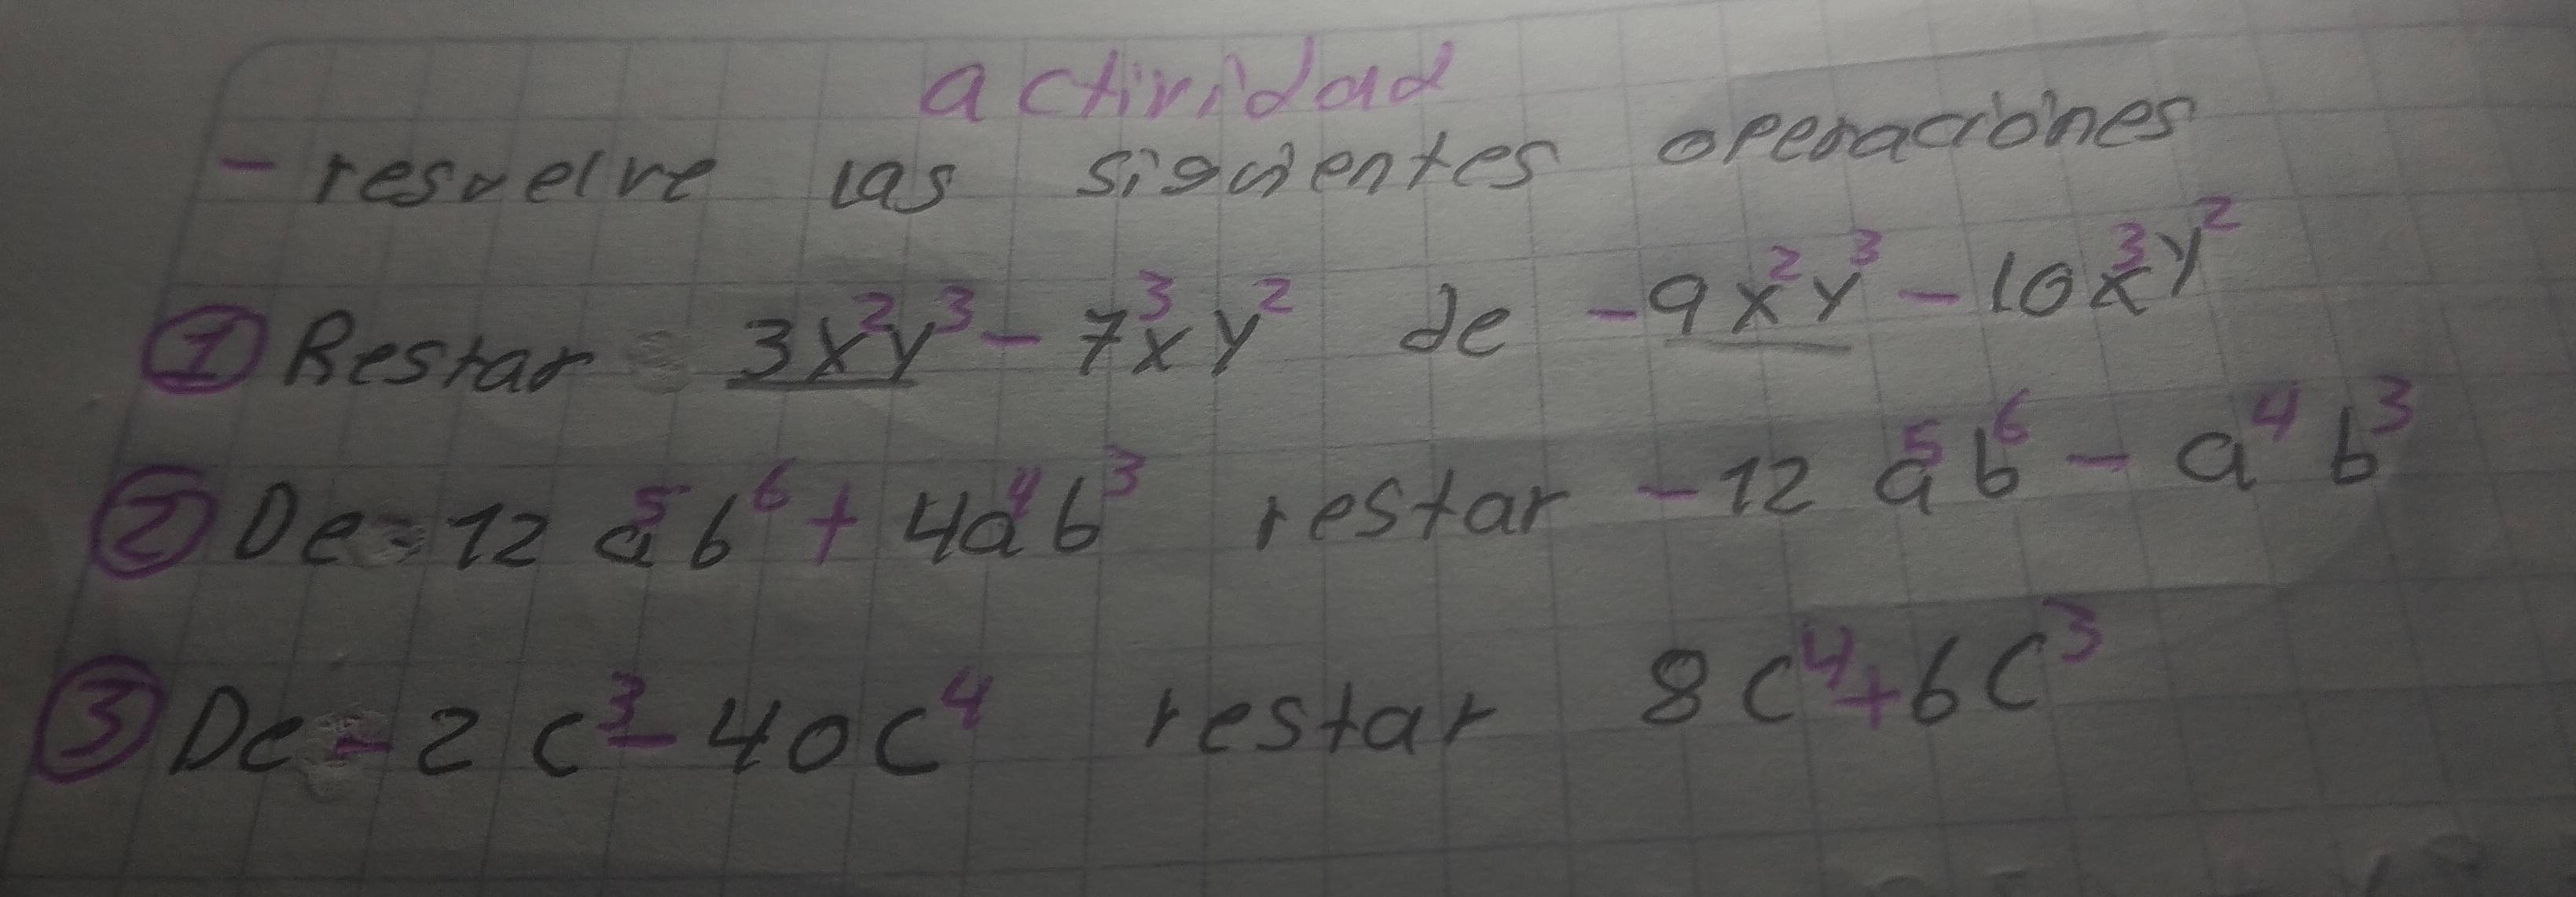 actividad
- resuelve las siguientes operaciones
① Restar 3x²y³ - 7x³y² de -9x²y³ - 10x³y²
② De 12 a⁵b⁶ + 4a⁴b³ restar -12 a⁵b⁶ - a⁴b³
③ De - 2c³ - 40c⁴ restar 8c⁴ + 6c³